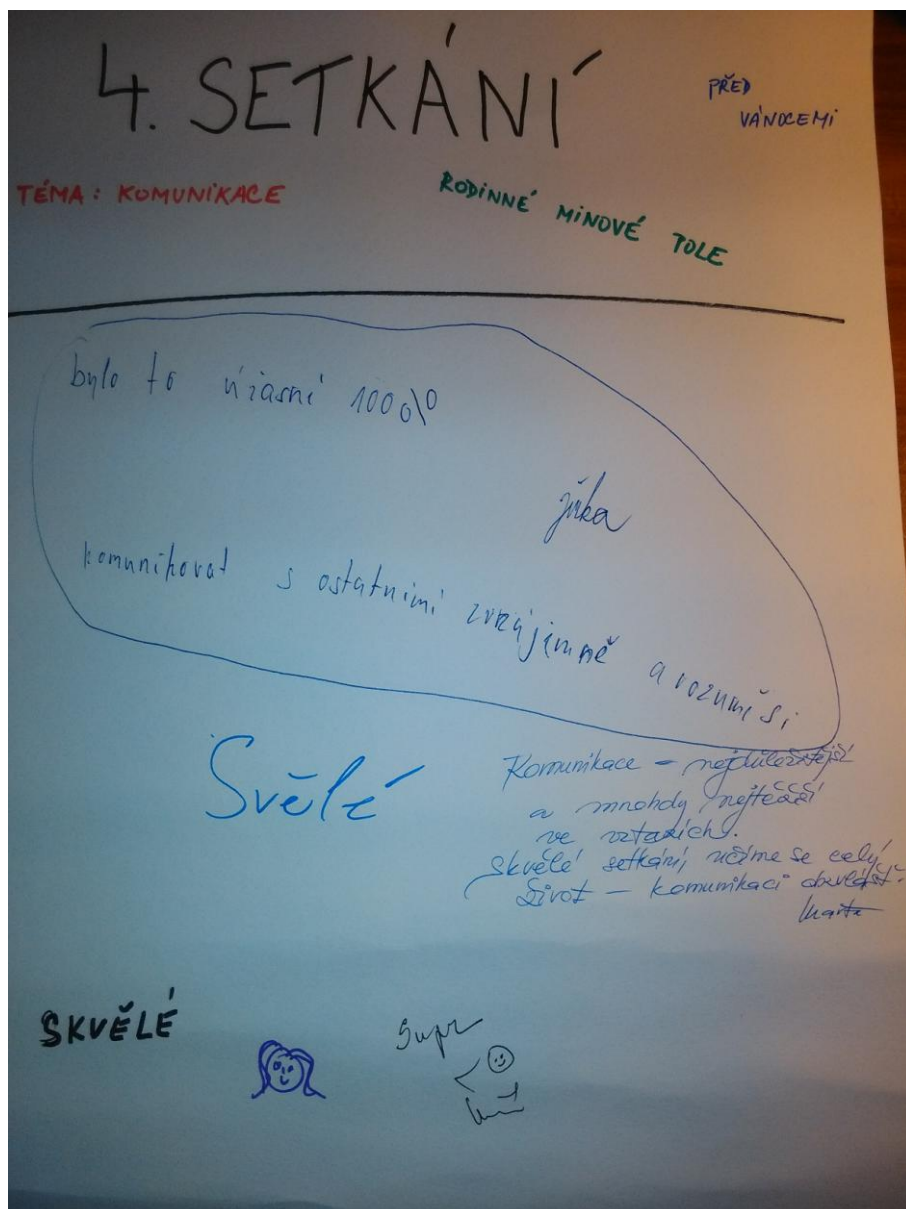 4. SETKÁNÍ
PŘED
VÁNOCEMI
TÉMA: KOMUNIKACE
RODINNÉ MINOVÉ POLE
bylo to úžasní 100%
komunikovat s ostatními
a rozumě si
Svělé
Komunikace – nejdůležitější
a mnohdy nejtěžší
ve vztazích.
Skvělé setkání, učíme se celý
život – komunikaci obzvlášť.
SKVĚLÉ
Supr